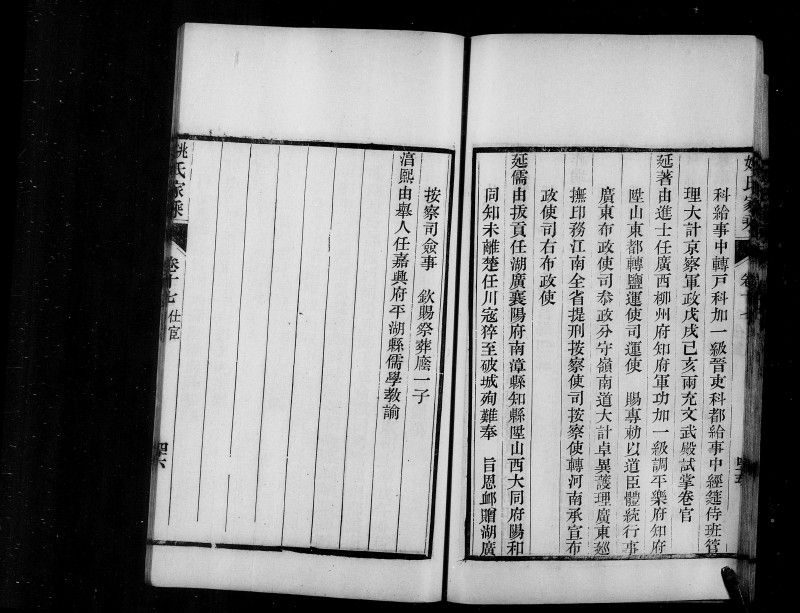 科給事中轉戸科加一級晉吏科都給事中經筵侍班管
理大計京察軍政戊戌己亥兩充文武殿試掌卷官
延著由進士任廣西柳州府知府軍功加一級調平樂府知府
陞山東都轉鹽運使司運使　賜專勅以道臣體統行事
廣東布政使司叅政分守嶺南道大計卓異護理廣東廵
撫印務江南全省提刑按察使司按察使轉河南承宣布
政使司右布政使
延儒由拔貢任湖廣襄陽府南漳縣知縣陞山西大同府陽和
同知未離楚任川寇猝至破城殉難奉　旨恩䘏贈湖廣
按察司僉事　欽賜祭葬廕一子
淯熙由舉人任嘉興府平湖縣儒學教諭
姚氏家乘
卷十七　仕宦
四六